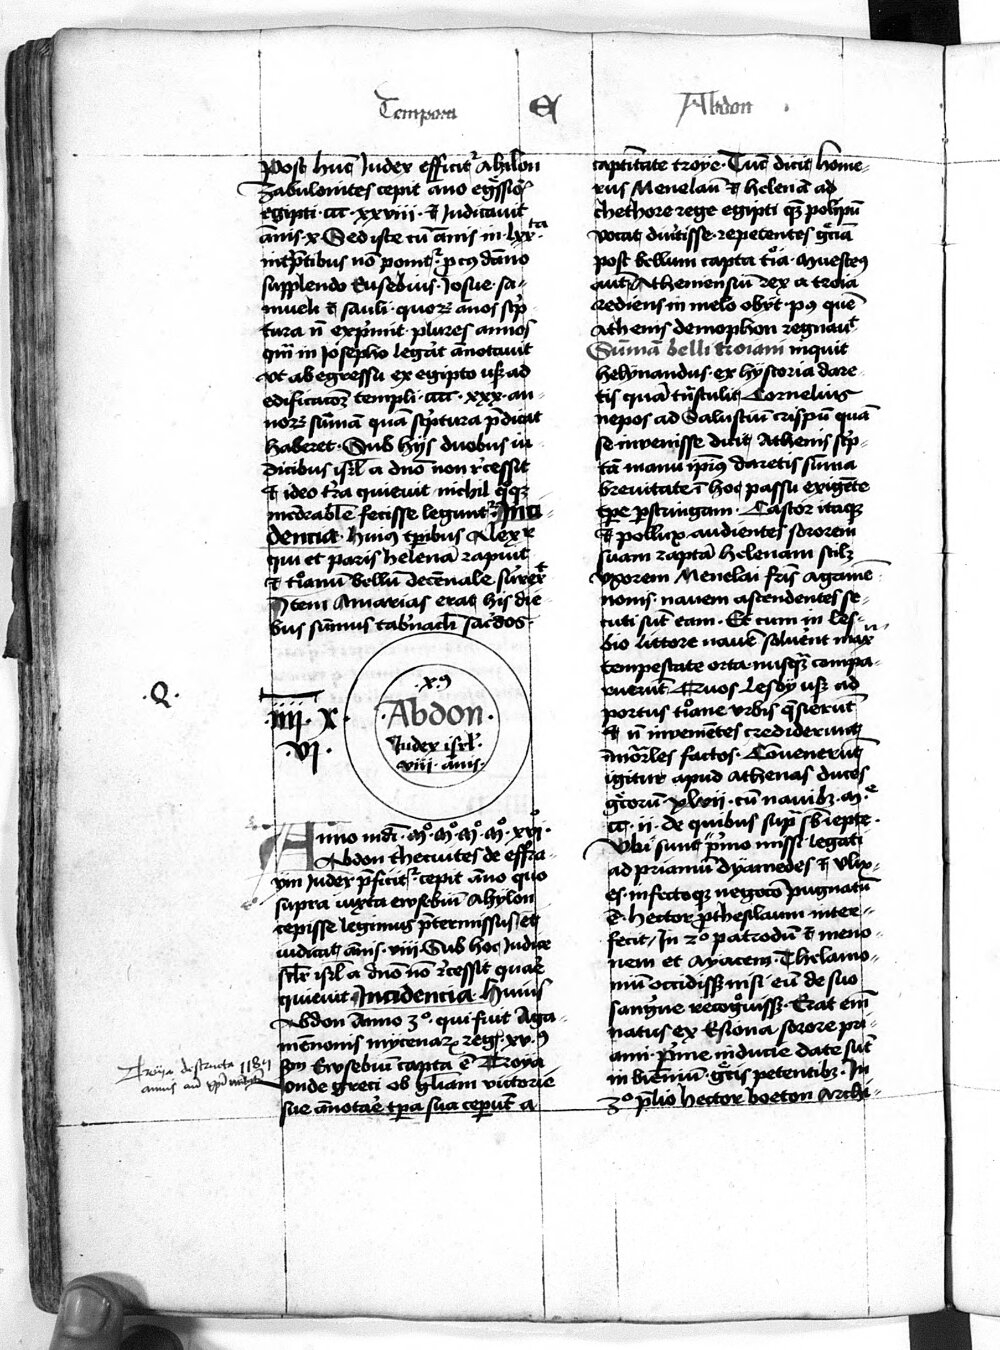 Tempora
Abdon
post hunc Iudex efficitur Ahilon
Zabulonites cepit anno egressionis
egipti cccc xxviii et Iudicavit
annis x Sed iste cum annis in lxx
supplendo Eusebius Iosue sa-
muelis et sauli quorum annos scrip
tura non exprimit plures annos
quam in Iosepho legerat annotavit
ut ab egressu ex egipto usque ad
edificacionem templi cccc xxx an-
norum summam quam scriptura predicat
haberet Sub hijs duobus iu
dicibus israel a domino non recessit
et ideo terra quievit nichil
fecisse leguntur Inci
dencia huius temporibus Alexander
qui et paris helenam rapuit
et troianum bellum decennale surrexit
Item Amarias erat his die-
bus summus tabernaculi sacerdos
.Q.
.iiii. x.
.vi.
.x9
.Abdon.
Iudex israel
viii annis
Anno mundi M M M M xvi
Abdon thecuites de effra-
ym Iudex preficitur cepit anno quo
supra iuxta eusebium Ahylon
cepisse legimus pretermissus et
iudicat annis viii Sub hoc Iudice
israel a domino non recessit quare
quievit Incidencia huius
Abdon Anno 3o qui fuit Aga-
mennonis mycenarum regis xv
secundum Eusebium capta est Troya
unde greci ob gloriam victorie
sue annotare tempora sua ceperunt a
Troija destructa 118
annis ante
captivitate troye Tunc dicit home-
rus Menelaum et helenam ad
thethore rege egipti quem polipum
vocat divertisse repetentes greciam
post bellum capta troia Muesteus
autem Atheniensium rex a troia
rediens in melo obijt post quem
Athenis demophon regnavit
Summam belli troiani inquit
helynandus ex hystoria dare-
tis quam transtulit Cornelius
nepos ad Salustium crispum quam
se invenisse dicit Athenis scrip-
tam manu ipsius daretis summa
brevitate in hoc passu exigente
tempore perstringam Castor itaque
et pollux audientes sororem
suam raptam helenam scilicet
uxorem Menelai fratris agamen-
nonis navem ascendentes se-
cuti sunt eam Et cum in les-
bio littore navem solverent maxima
tempestate orta nusquam compa-
ruerunt Quos lesbij usque ad
portus troiane urbis quesierunt
et non invenientes crediderunt
immortales factos Convenerunt
igitur apud Athenas duces
grecorum xlvii cum navibus M
cc ii de quibus supra sub iepte
Ubi sunt primo missi legati
ad priamum dyamedes et ulix-
es infectoque negocio pugnatum
est hector protheselaum inter-
fecit In 2o patroclum et merio-
nem et Ayacem Thelamo-
nium occidisset nisi eum de suo
sanguine recognovisset Erat enim
natus ex Esiona sorore pri-
ami prime inducie date sunt
in biennium grecis petentibus In
3o prelio hector boeton Archi-